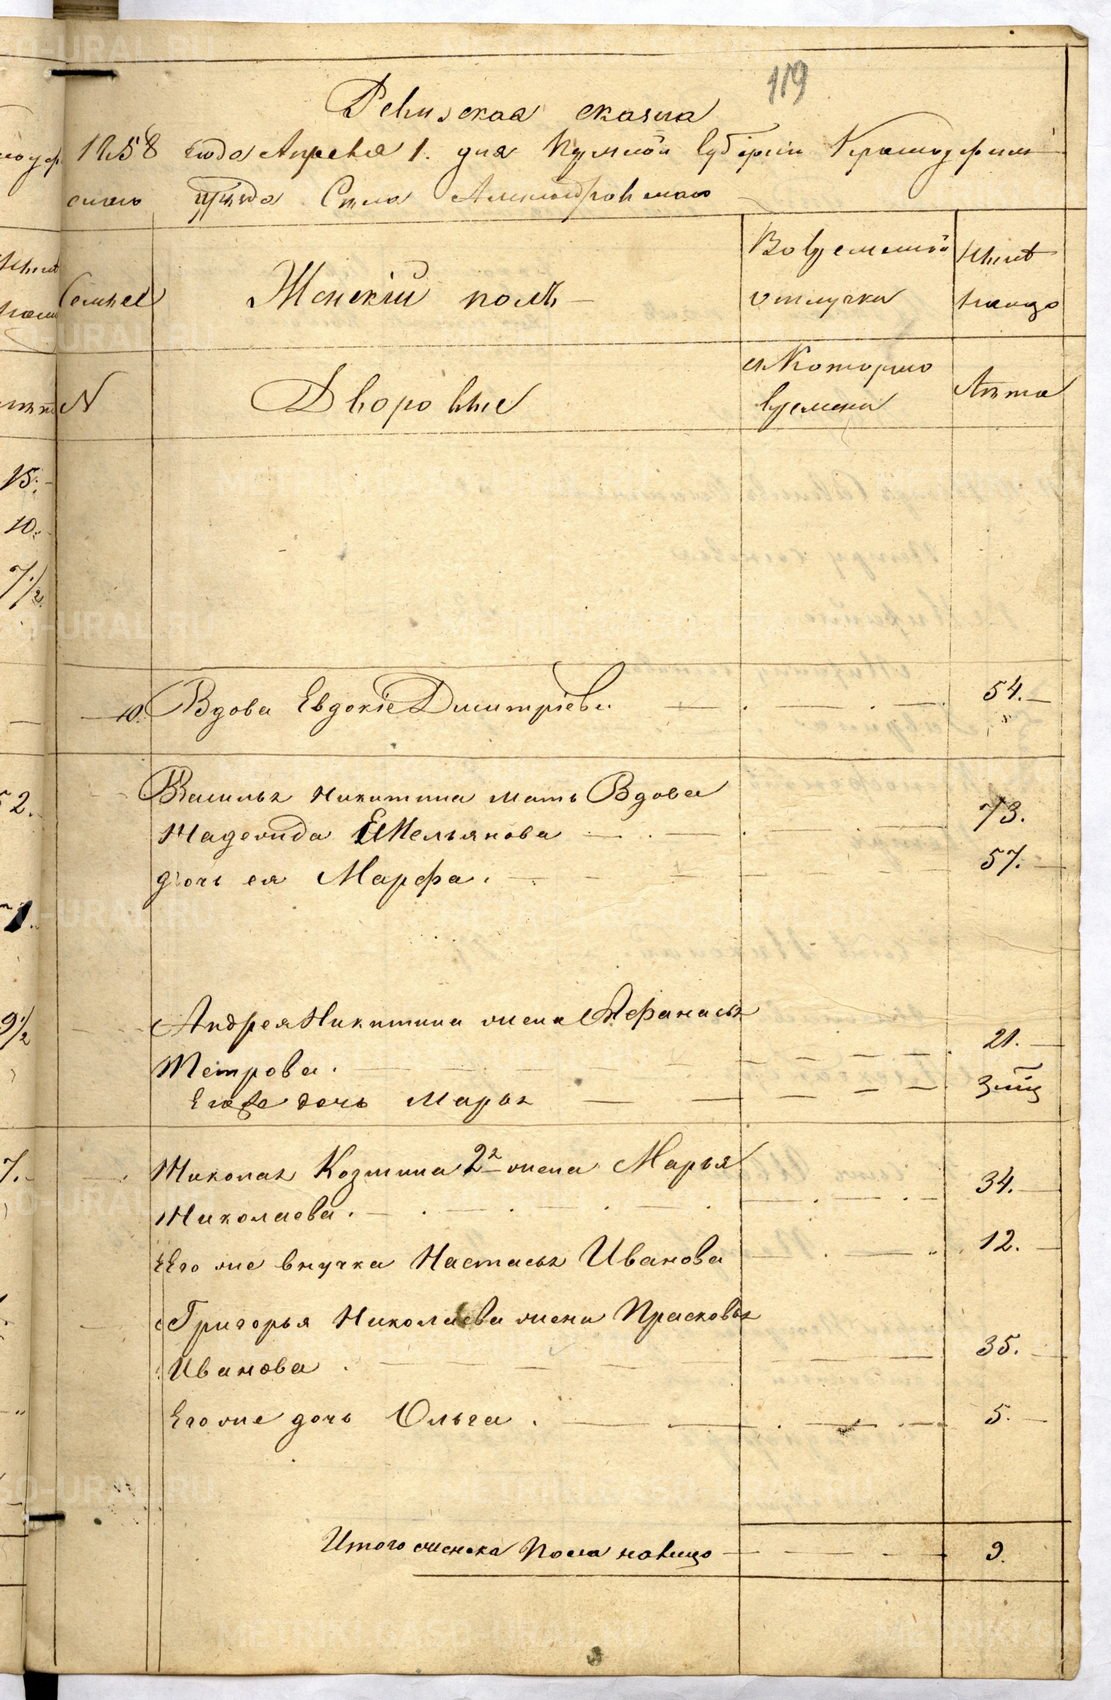 119
Ревизская сказка
1858 года Апреля 1. дня Пермской Губернiи Красноуфим
скаго уѣзда Села Александровскаго
Семьи
Женскiй полъ
Во временной
отлучке
Ныне
налицо
N
Дворовые
съ Котораго
времени
Лѣта
10. Вдова Евдокiе Дмитрiева 54.
Василья Никитина мать Вдова
Надежда Емельянова 73.
дочь ея Марфа. 57.
Андрея Никитина жена Афанасья
Петрова. 21.
Егоже дочь Марья
Николая Козмина 2я жена Марья
Николаева. 34.
Его же внучка Настасья Иванова 12.
Григорья Николаева жена Прасковья
Иванова. 35.
Его же дочь Ольга. 5.
Итого женска пола налицо 9.
15.
10.
7 1/2
52.
71.
9 1/2
7.
METRIKI.GASO-URAL.RU